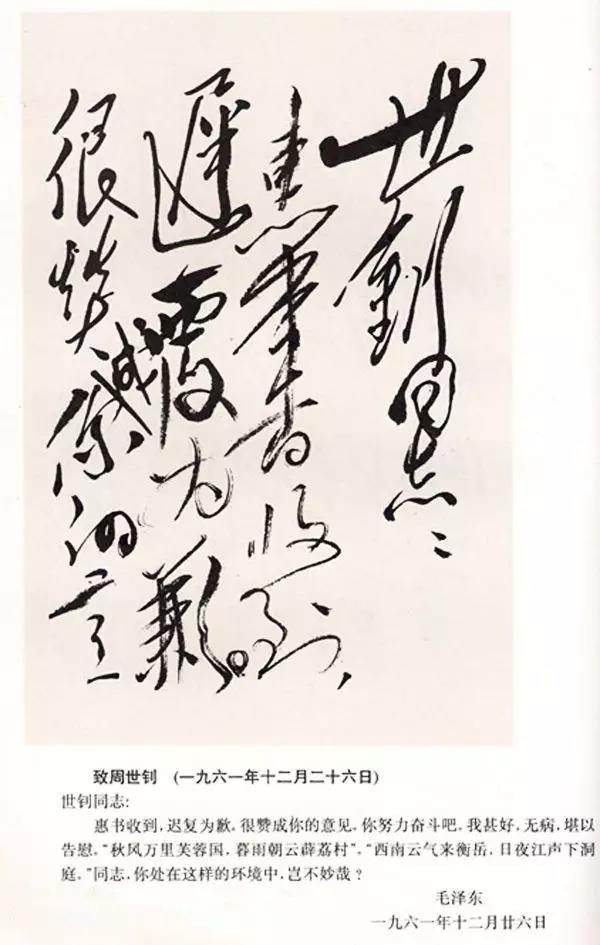 世釗同志：
惠書收到，
遲覆为歉。
很赞成你的意
致周世钊 (一九六一年十二月二十六日)
世钊同志:
惠书收到,迟复为歉。很赞成你的意见。你努力奋斗吧。我甚好,无病,堪以
告慰。“秋风万里芙蓉国,暮雨朝云薜荔村”。“西南云气来衡岳,日夜江声下洞
庭。”同志,你处在这样的环境中,岂不妙哉?
毛泽东
一九六一年十二月廿六日